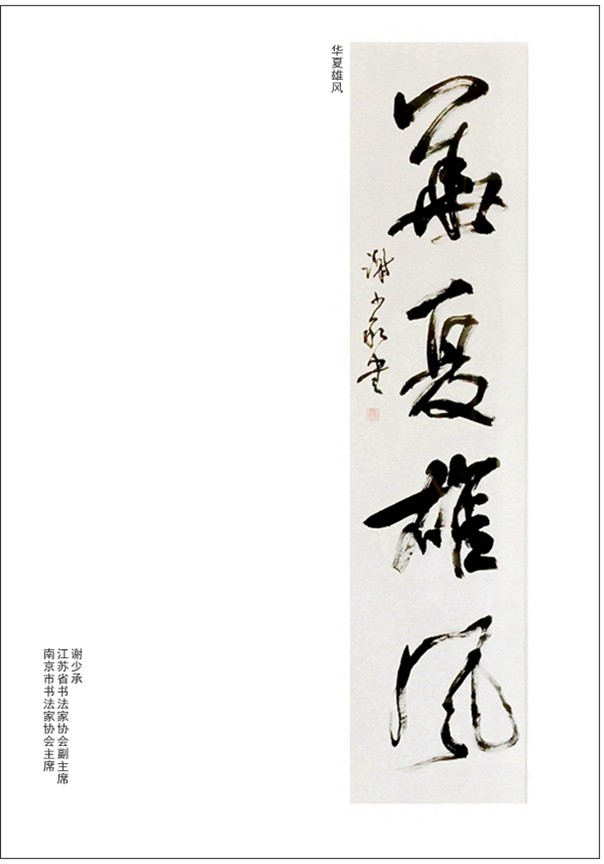 华夏雄风
華夏雄风
谢少承书
谢少承
江苏省书法家协会副主席
南京市书法家协会主席